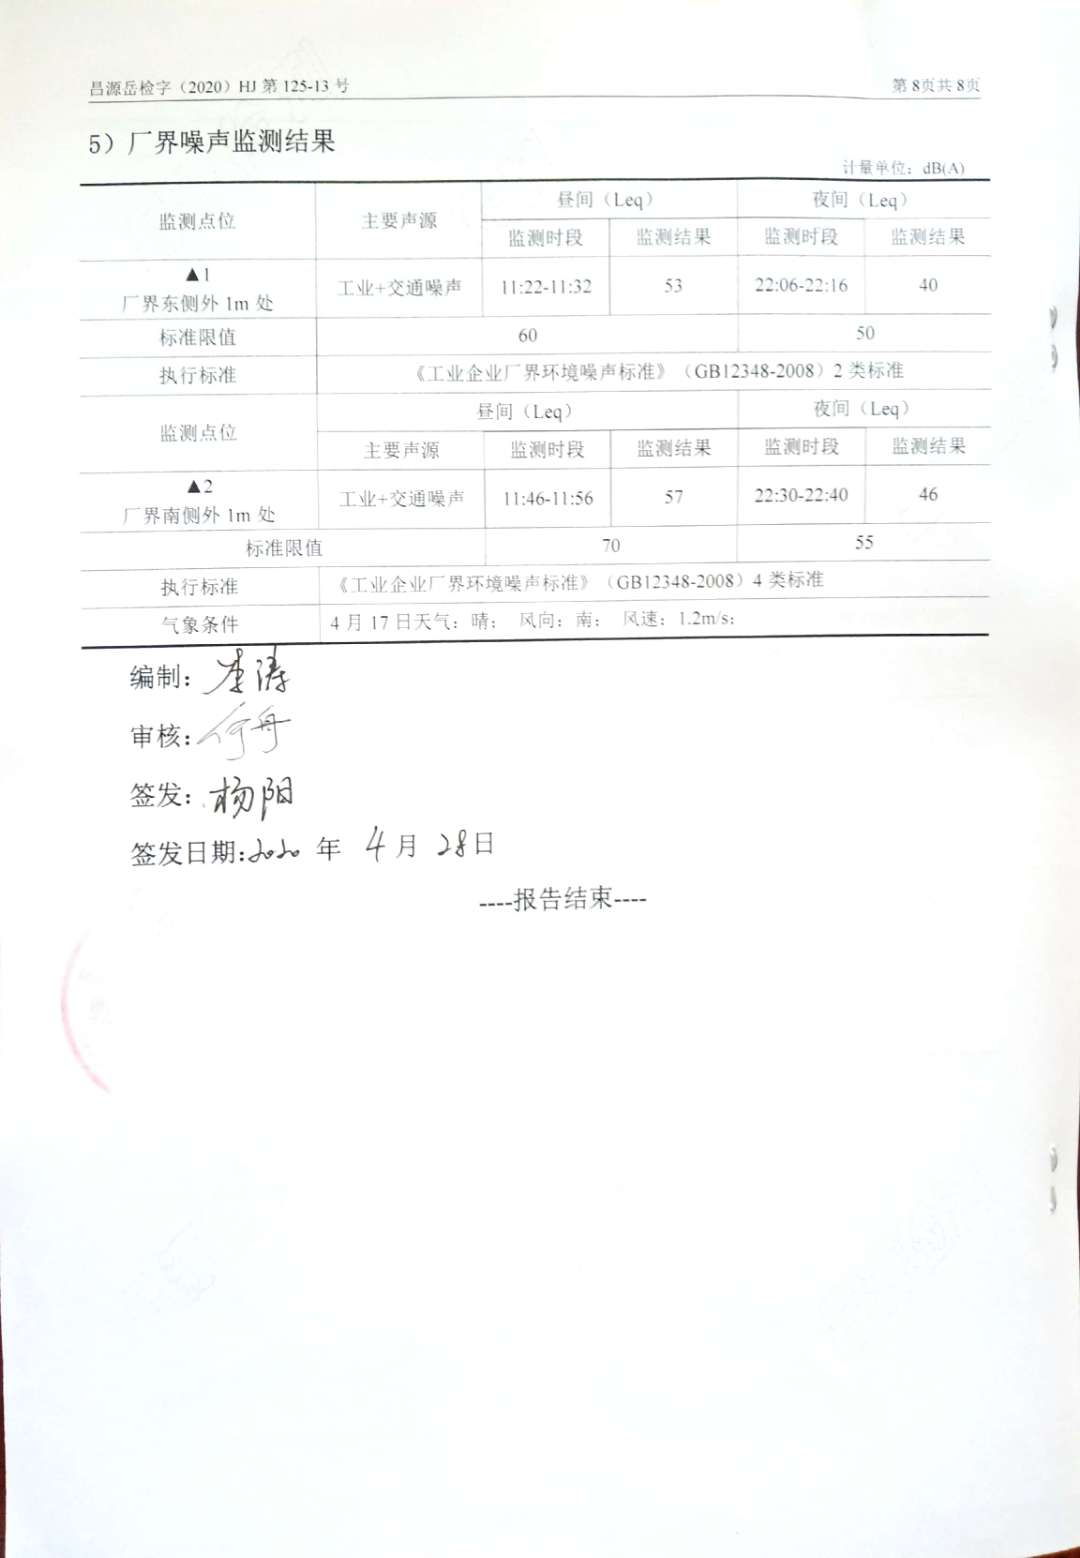 昌源岳检字（2020）HJ 第 125-13 号 第 8页共 8页
5）厂界噪声监测结果
计量单位：dB(A)
监测点位 主要声源 昼间（Leq） 夜间（Leq）
监测时段 监测结果 监测时段 监测结果
▲1
厂界东侧外 1m 处 工业+交通噪声 11:22-11:32 53 22:06-22:16 40
标准限值 60 50
执行标准 《工业企业厂界环境噪声标准》（GB12348-2008）2 类标准
监测点位 昼间（Leq） 夜间（Leq）
主要声源 监测时段 监测结果 监测时段 监测结果
▲2
厂界南侧外 1m 处 工业+交通噪声 11:46-11:56 57 22:30-22:40 46
标准限值 70 55
执行标准 《工业企业厂界环境噪声标准》（GB12348-2008）4 类标准
气象条件 4 月 17 日天气：晴； 风向：南； 风速：1.2m/s；
编制：李涛
审核：何舟
签发：杨阳
签发日期:2020 年 4 月 28 日
----报告结束----